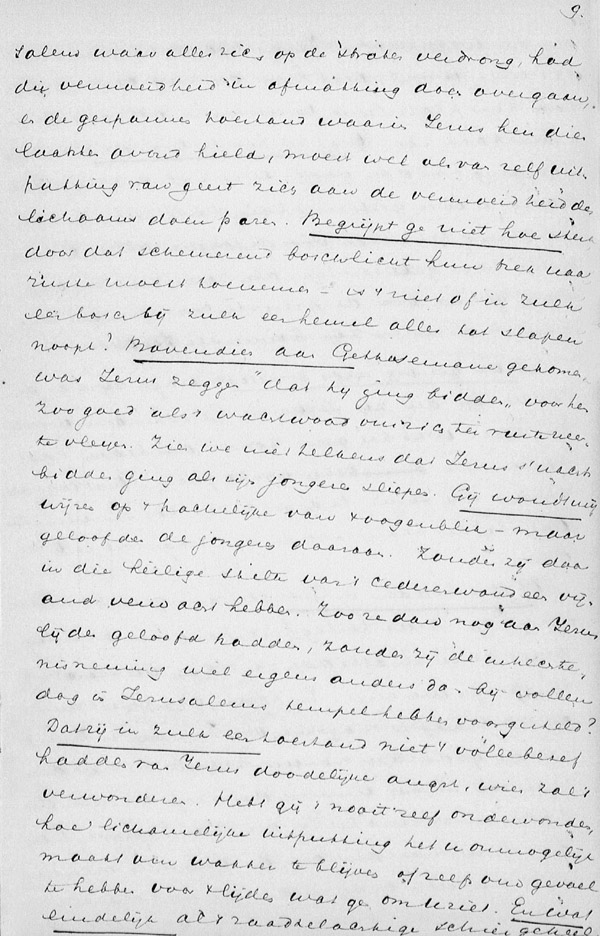 9.
salems waar alles zich op de straten verdrong, had
die vermoeidheid in afmatting doen overgaan,
en de gespannen toestand waarin Jezus hen dien
laatsten avond hield, moest wel als van zelf uit-
putting van geest zich aan de vermoeidheid des
lichaams doen paren. Begrijpt ge niet hoe sterk
door dat schemerend boschlicht hun trek naar
ruste moest toenemen – is 't niet of in zulk
een bosch bij zulk een hemel alles tot slapen
noopt? Bovendien aan Gethsemane gekomen,
was Jezus zeggen "dat hij ging bidden" voor hen
zoo goed als 't wachtwoord om zich ter ruste neer
te vleyen. Zien we niet telkens dat Jezus 's nachts
bidden ging als zijn jongeren sliepen. Gij woudt mij
wijzen op 't hachelijke van 't oogenblik – maar
geloofden de jongeren daaraan. Zouden zij daar
in die heilige stilte van 't cederenwoud een vij-
and verwacht hebben. Zoo ze dan nog aan Jezus
lijden geloofd hadden, zouden zij de inhechte-
nisneming wel ergens anders dan bij vollen
dag in Jerusalems tempel hebben voorgesteld?
Dat zij in zulk een toestand niet 't volle besef
hadden van Jezus doodelijke angst, wien zal 't
verwonderen. Hebt gij 't nooit zelf ondervonden,
hoe lichamelijke uitputting het u onmogelijk
maakt om wakker te blijven of zelfs ons gevoel
te hebben voor 't lijden wat ge om u ziet. En wat
eindelijk al 't raadselachtige schier geheel